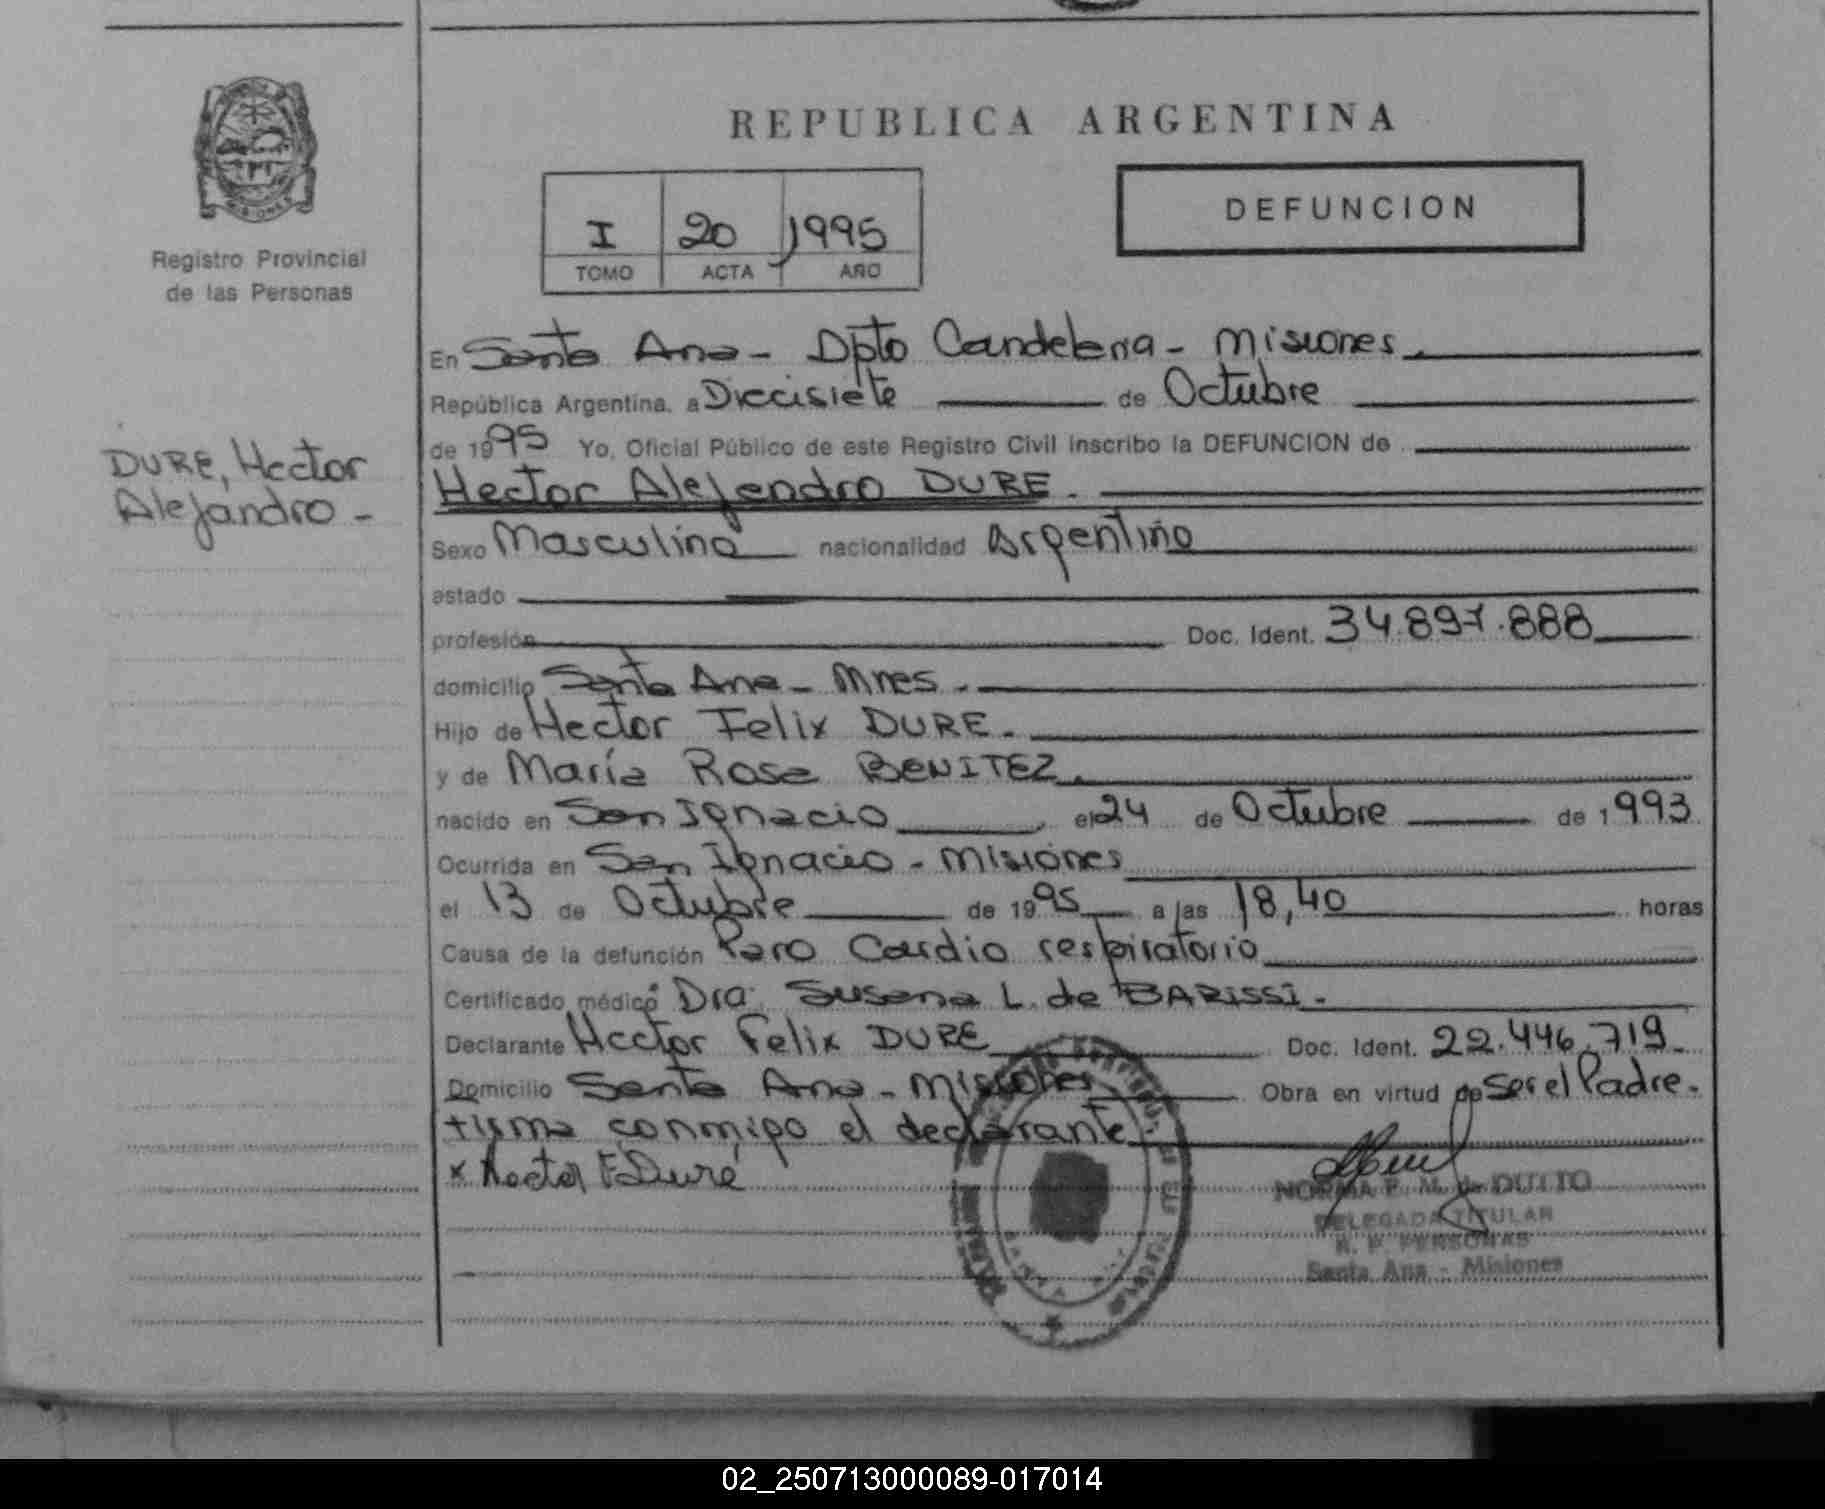 REPUBLICA ARGENTINA
MISIONES
Registro Provincial
de las Personas
I 20 1995
TOMO ACTA AÑO
DEFUNCION
DURE, Hector
Alejandro -
En Santa Ana - Dpto Candelaria - Misiones.
República Argentina, a Diecisiete de Octubre
de 1995 Yo, Oficial Público de este Registro Civil inscribo la DEFUNCION de
Hector Alejandro DURE.
Sexo Masculino nacionalidad Argentino
estado
profesión Doc. Ident. 34.897.888
domicilio Santa Ana - Mnes.
Hijo de Hector Felix DURE.
y de María Rosa BENITEZ.
nacido en San Ignacio el 24 de Octubre de 1993
Ocurrida en San Ignacio - Misiones
el 13 de Octubre de 1995 a las 18,40 horas
Causa de la defunción Paro Cardio respiratorio
Certificado médico Dra. Susana L. de BARISSI.
Declarante Hector Felix DURE Doc. Ident. 22.446.719
Domicilio Santa Ana - Misiones Obra en virtud de Ser el Padre.
firma conmigo el declarante.
x Hector F Duré
NORMA P. M. de DUTTO
DELEGADA TITULAR
R. P. PERSONAS
Santa Ana - Misiones
02_250713000089-017014